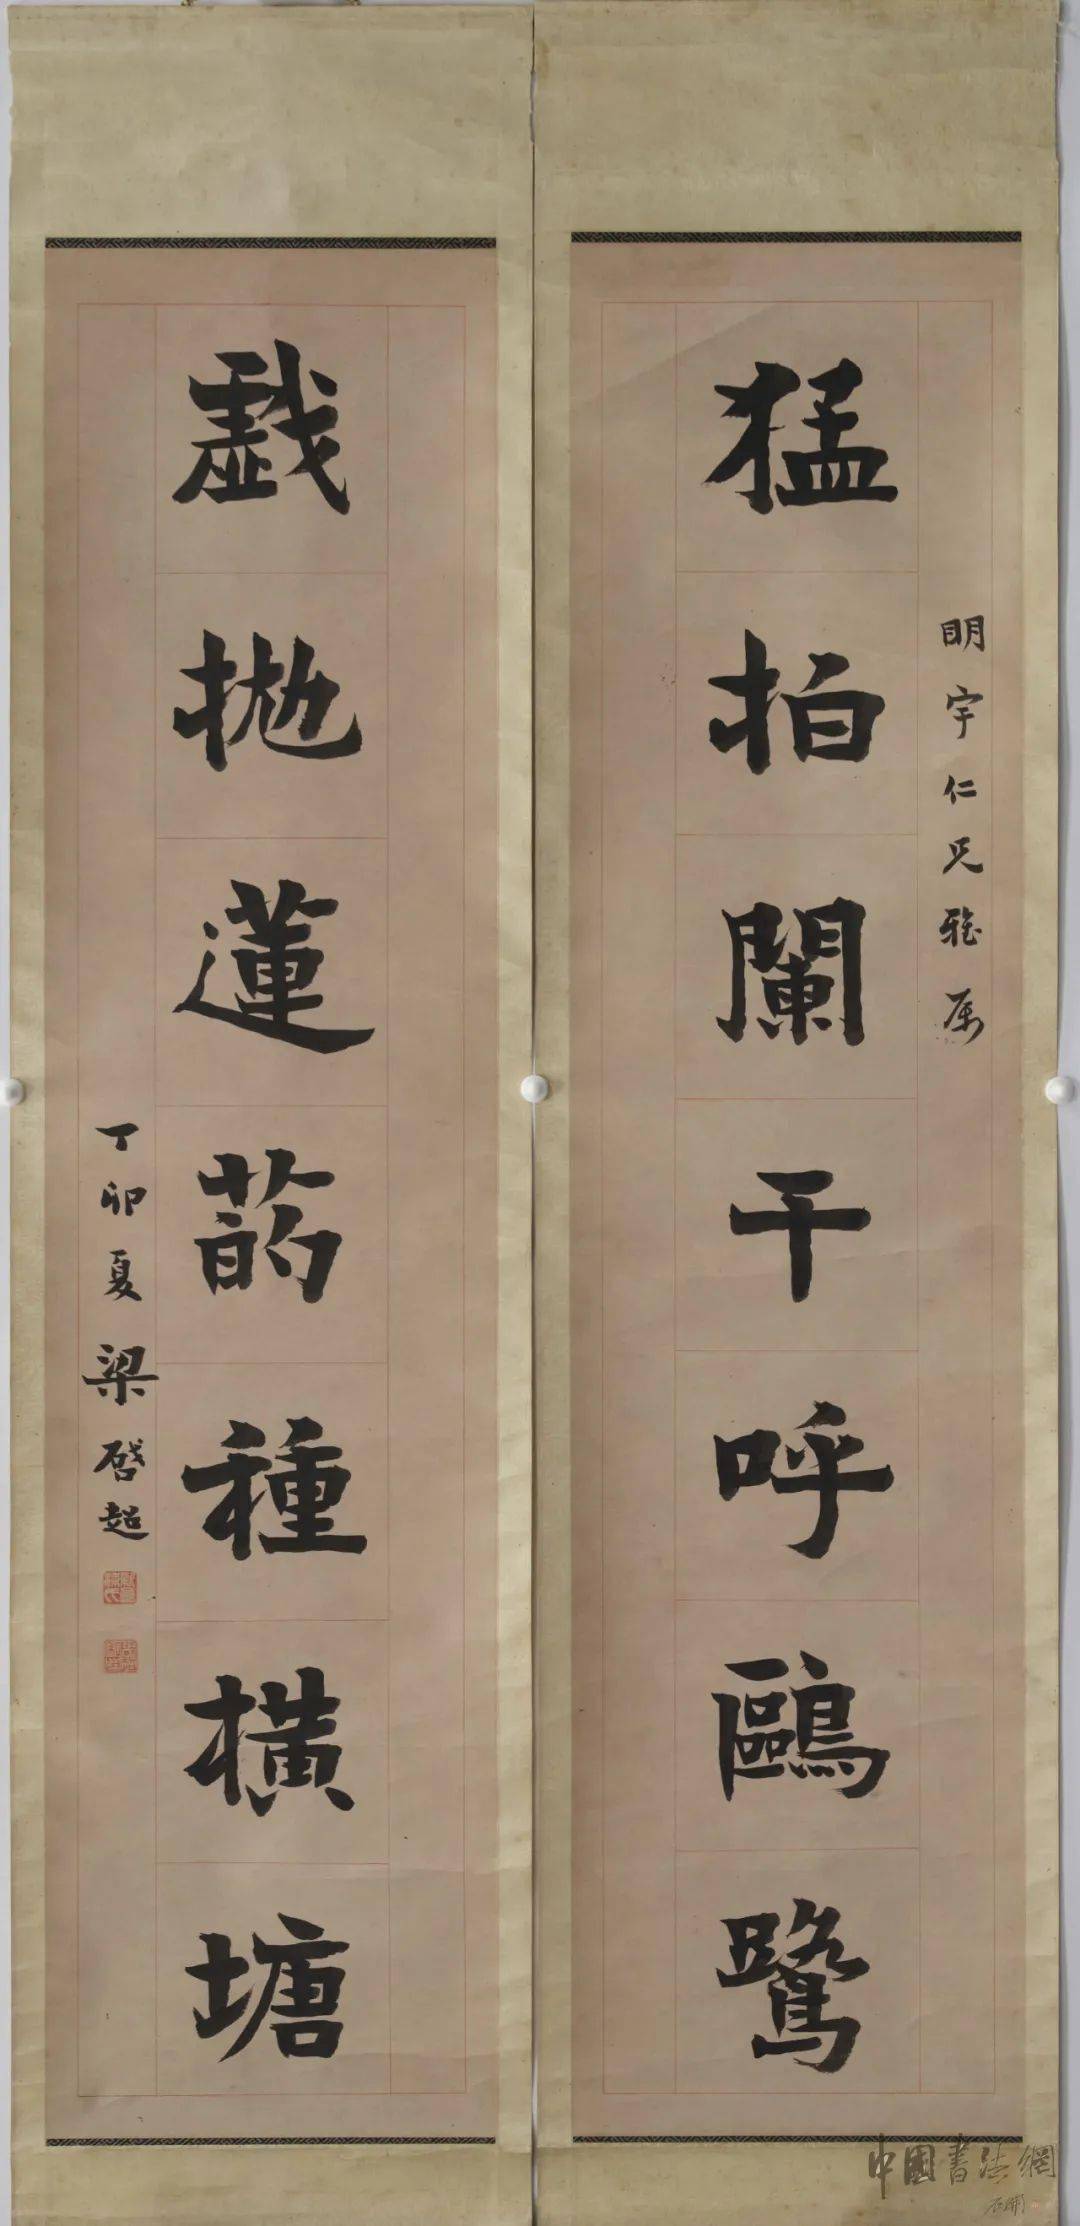 猛拍闌干呼鷗鷺
明宇仁兄雅属
戱拋蓮菂種橫塘
丁卯夏梁啓超
中國書法網